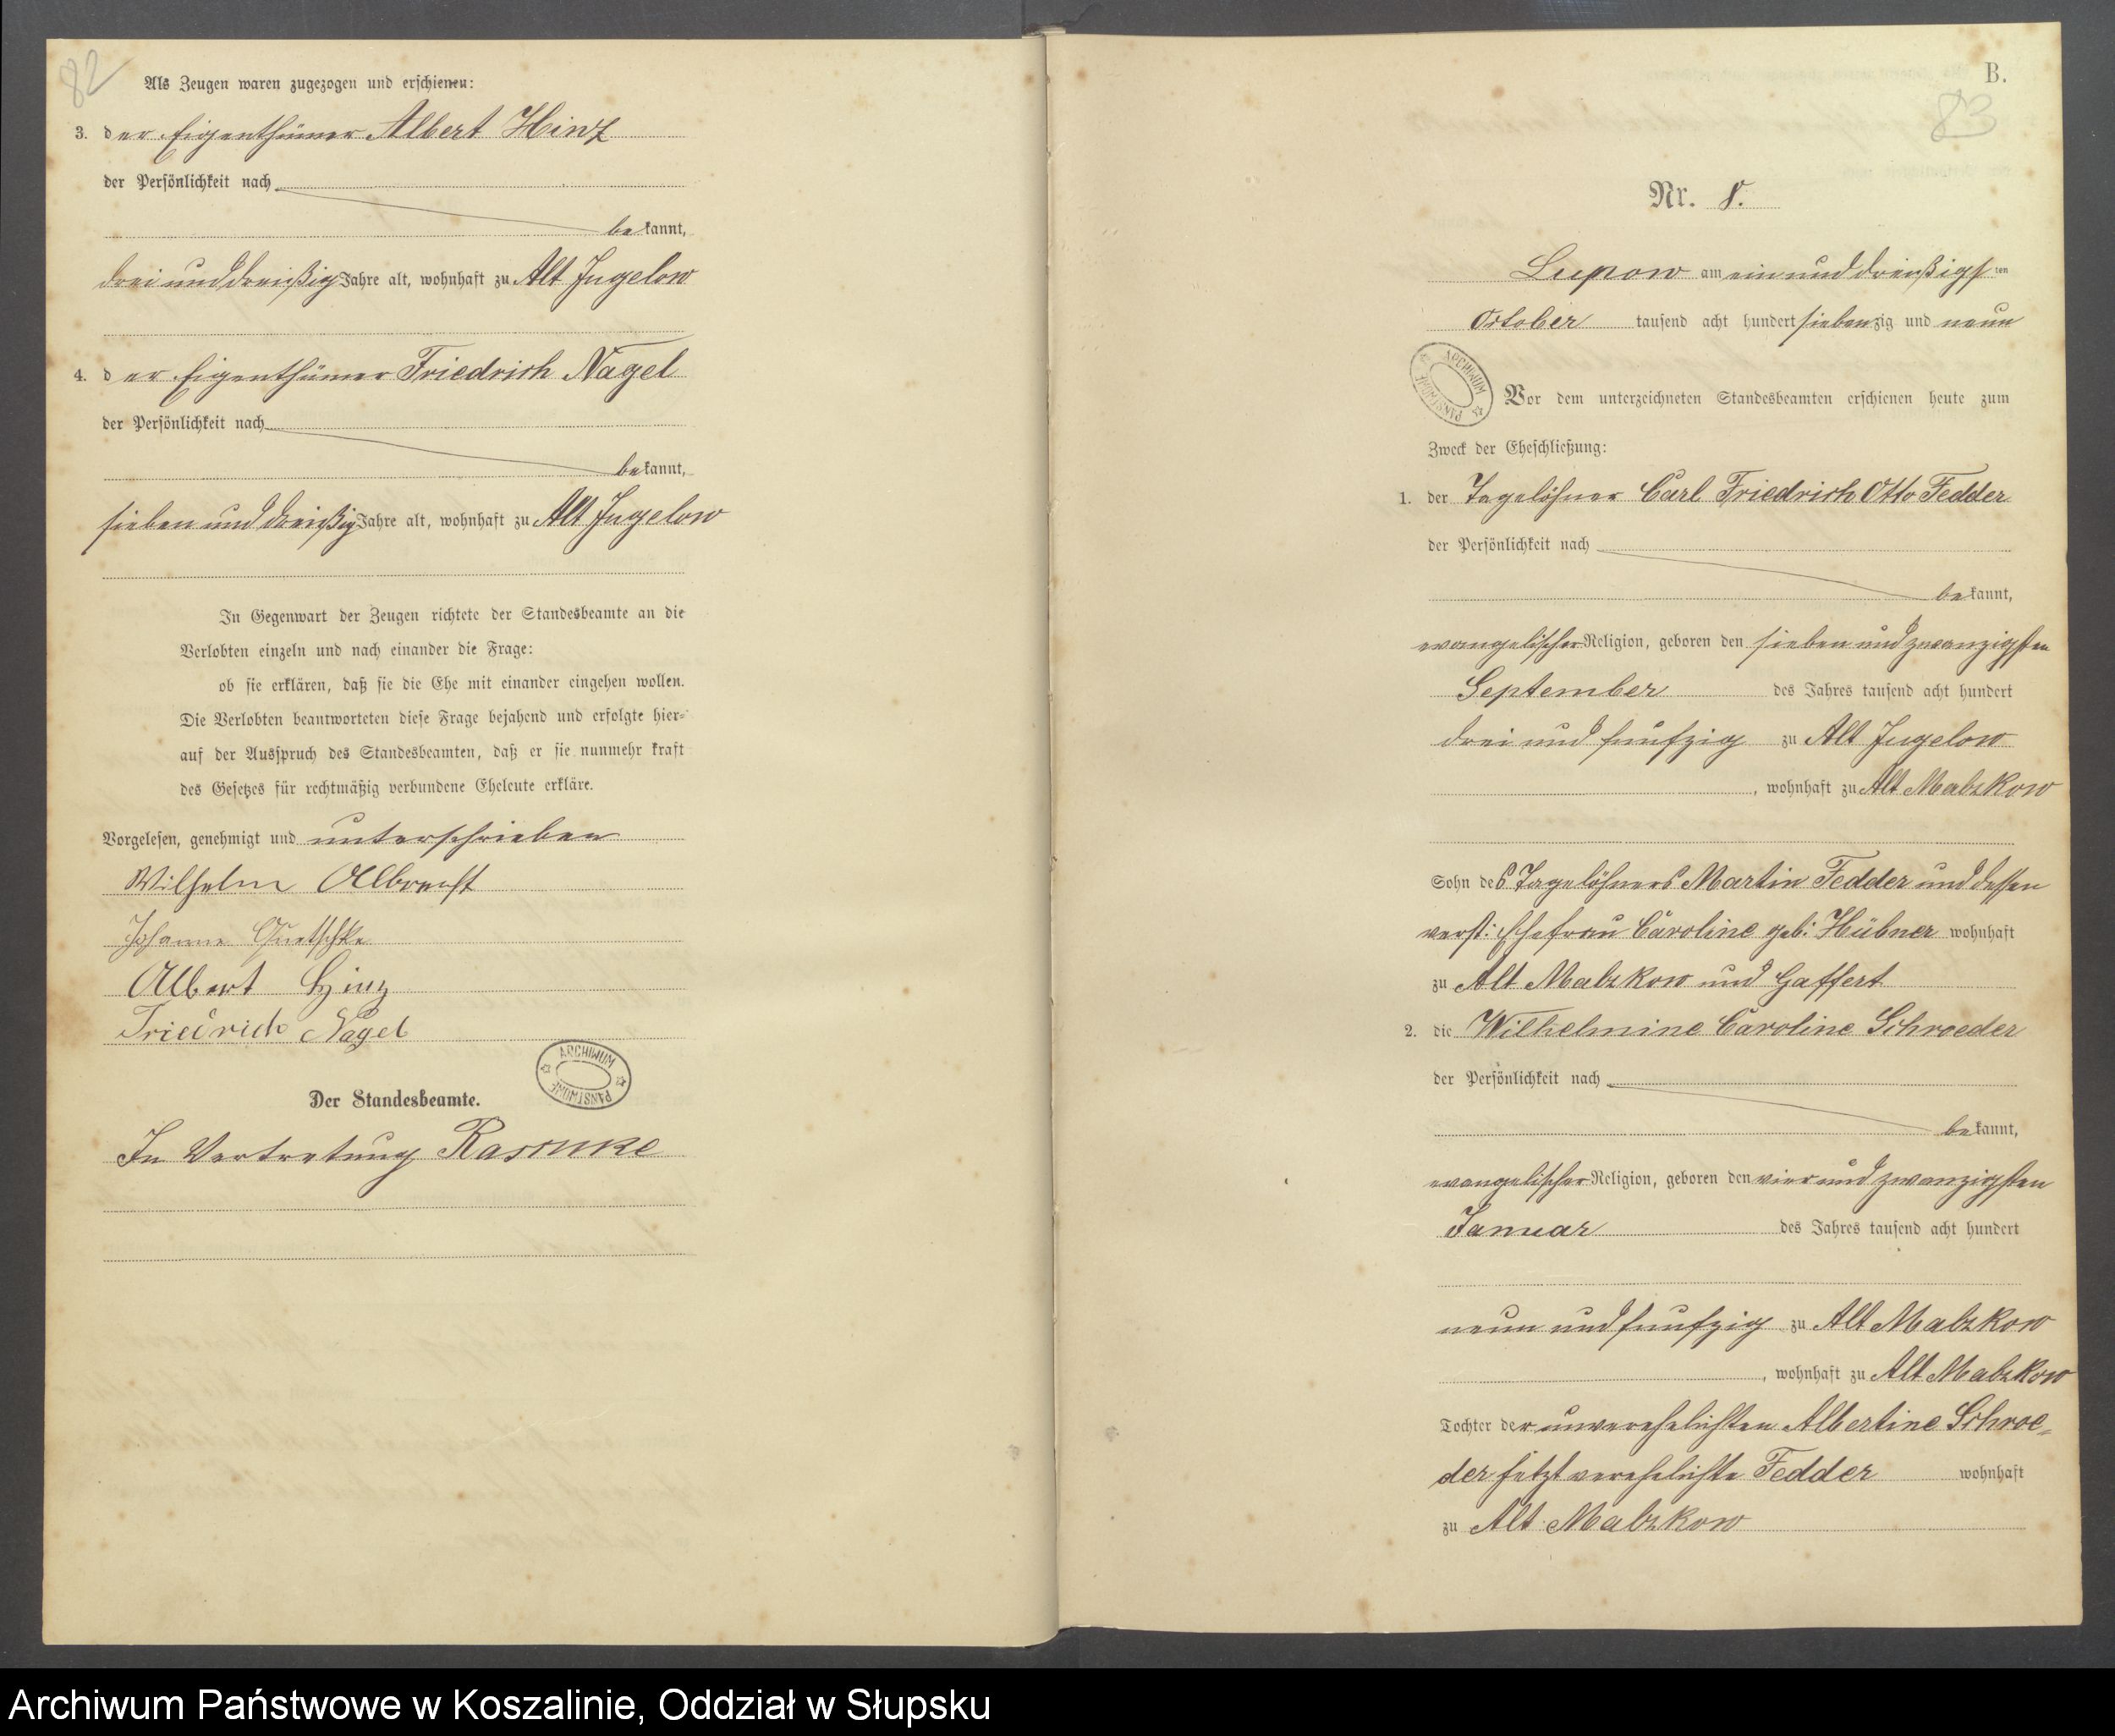 82
Als Zeugen waren zugezogen und erschienen:
3. der Eigenthümer Albert Hinz
der Persönlichkeit nach
bekannt,
drei und dreißig Jahre alt, wohnhaft zu Alt Jugelow
4. der Eigenthümer Friedrich Nagel
der Persönlichkeit nach
bekannt,
sieben und dreißig Jahre alt, wohnhaft zu Alt Jugelow
In Gegenwart der Zeugen richtete der Standesbeamte an die
Verlobten einzeln und nach einander die Frage:
ob sie erklären, daß sie die Ehe mit einander eingehen wollen.
Die Verlobten beantworteten diese Frage bejahend und erfolgte hier-
auf der Ausspruch des Standesbeamten, daß er sie nunmehr kraft
des Gesetzes für rechtmäßig verbundene Eheleute erkläre.
Vorgelesen, genehmigt und unterschrieben
Wilhelm Albrecht
Johanne Quetschke
Albert Hinz
Friedrich Nagel
ARCHIWUM PAŃSTWOWE
Der Standesbeamte.
In Vertretung
B.
83
Nr. 8.
Lupow am ein und dreißigsten
October tausend acht hundert siebenzig und neun
ARCHIWUM PAŃSTWOWE
Vor dem unterzeichneten Standesbeamten erschienen heute zum
Zweck der Eheschließung:
1. der Tagelöhner Carl Friedrich Otto Fedder
der Persönlichkeit nach
bekannt,
evangelischer Religion, geboren den sieben und zwanzigsten
September des Jahres tausend acht hundert
drei und funfzig zu Alt Jugelow
, wohnhaft zu Alt Malzkow
Sohn des Tagelöhners Martin Fedder und dessen
verst: Ehefrau Caroline geb: Hübner wohnhaft
zu Alt Malzkow und Gaffert
2. die Wilhelmine Caroline Schroeder
der Persönlichkeit nach
bekannt,
evangelischer Religion, geboren den vier und zwanzigsten
Januar des Jahres tausend acht hundert
neun und funfzig zu Alt Malzkow
, wohnhaft zu Alt Malzkow
Tochter der unverehelichten Albertine Schroe-
der jetzt verehelichte Fedder wohnhaft
zu Alt Malzkow
Archiwum Państwowe w Koszalinie, Oddział w Słupsku